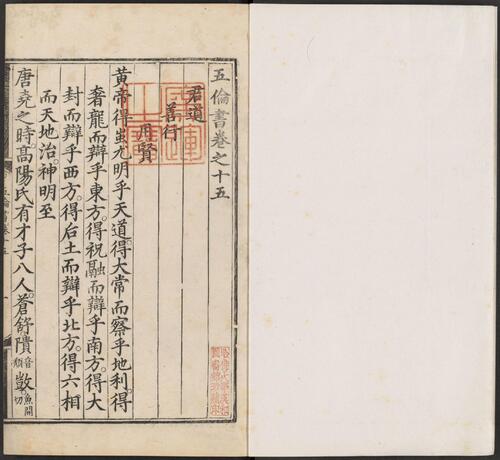 五倫書卷之十五
君道
善行
用賢
黃帝得蚩尤明乎天道。得大常而察乎地利。得
奢龍而辯乎東方。得祝融而辯乎南方。得大
封而辯乎西方。得后土而辯乎北方。得六相
而天地治。神明至
唐堯之時。高陽氏有才子八人。蒼舒隤音頹敳魚開切